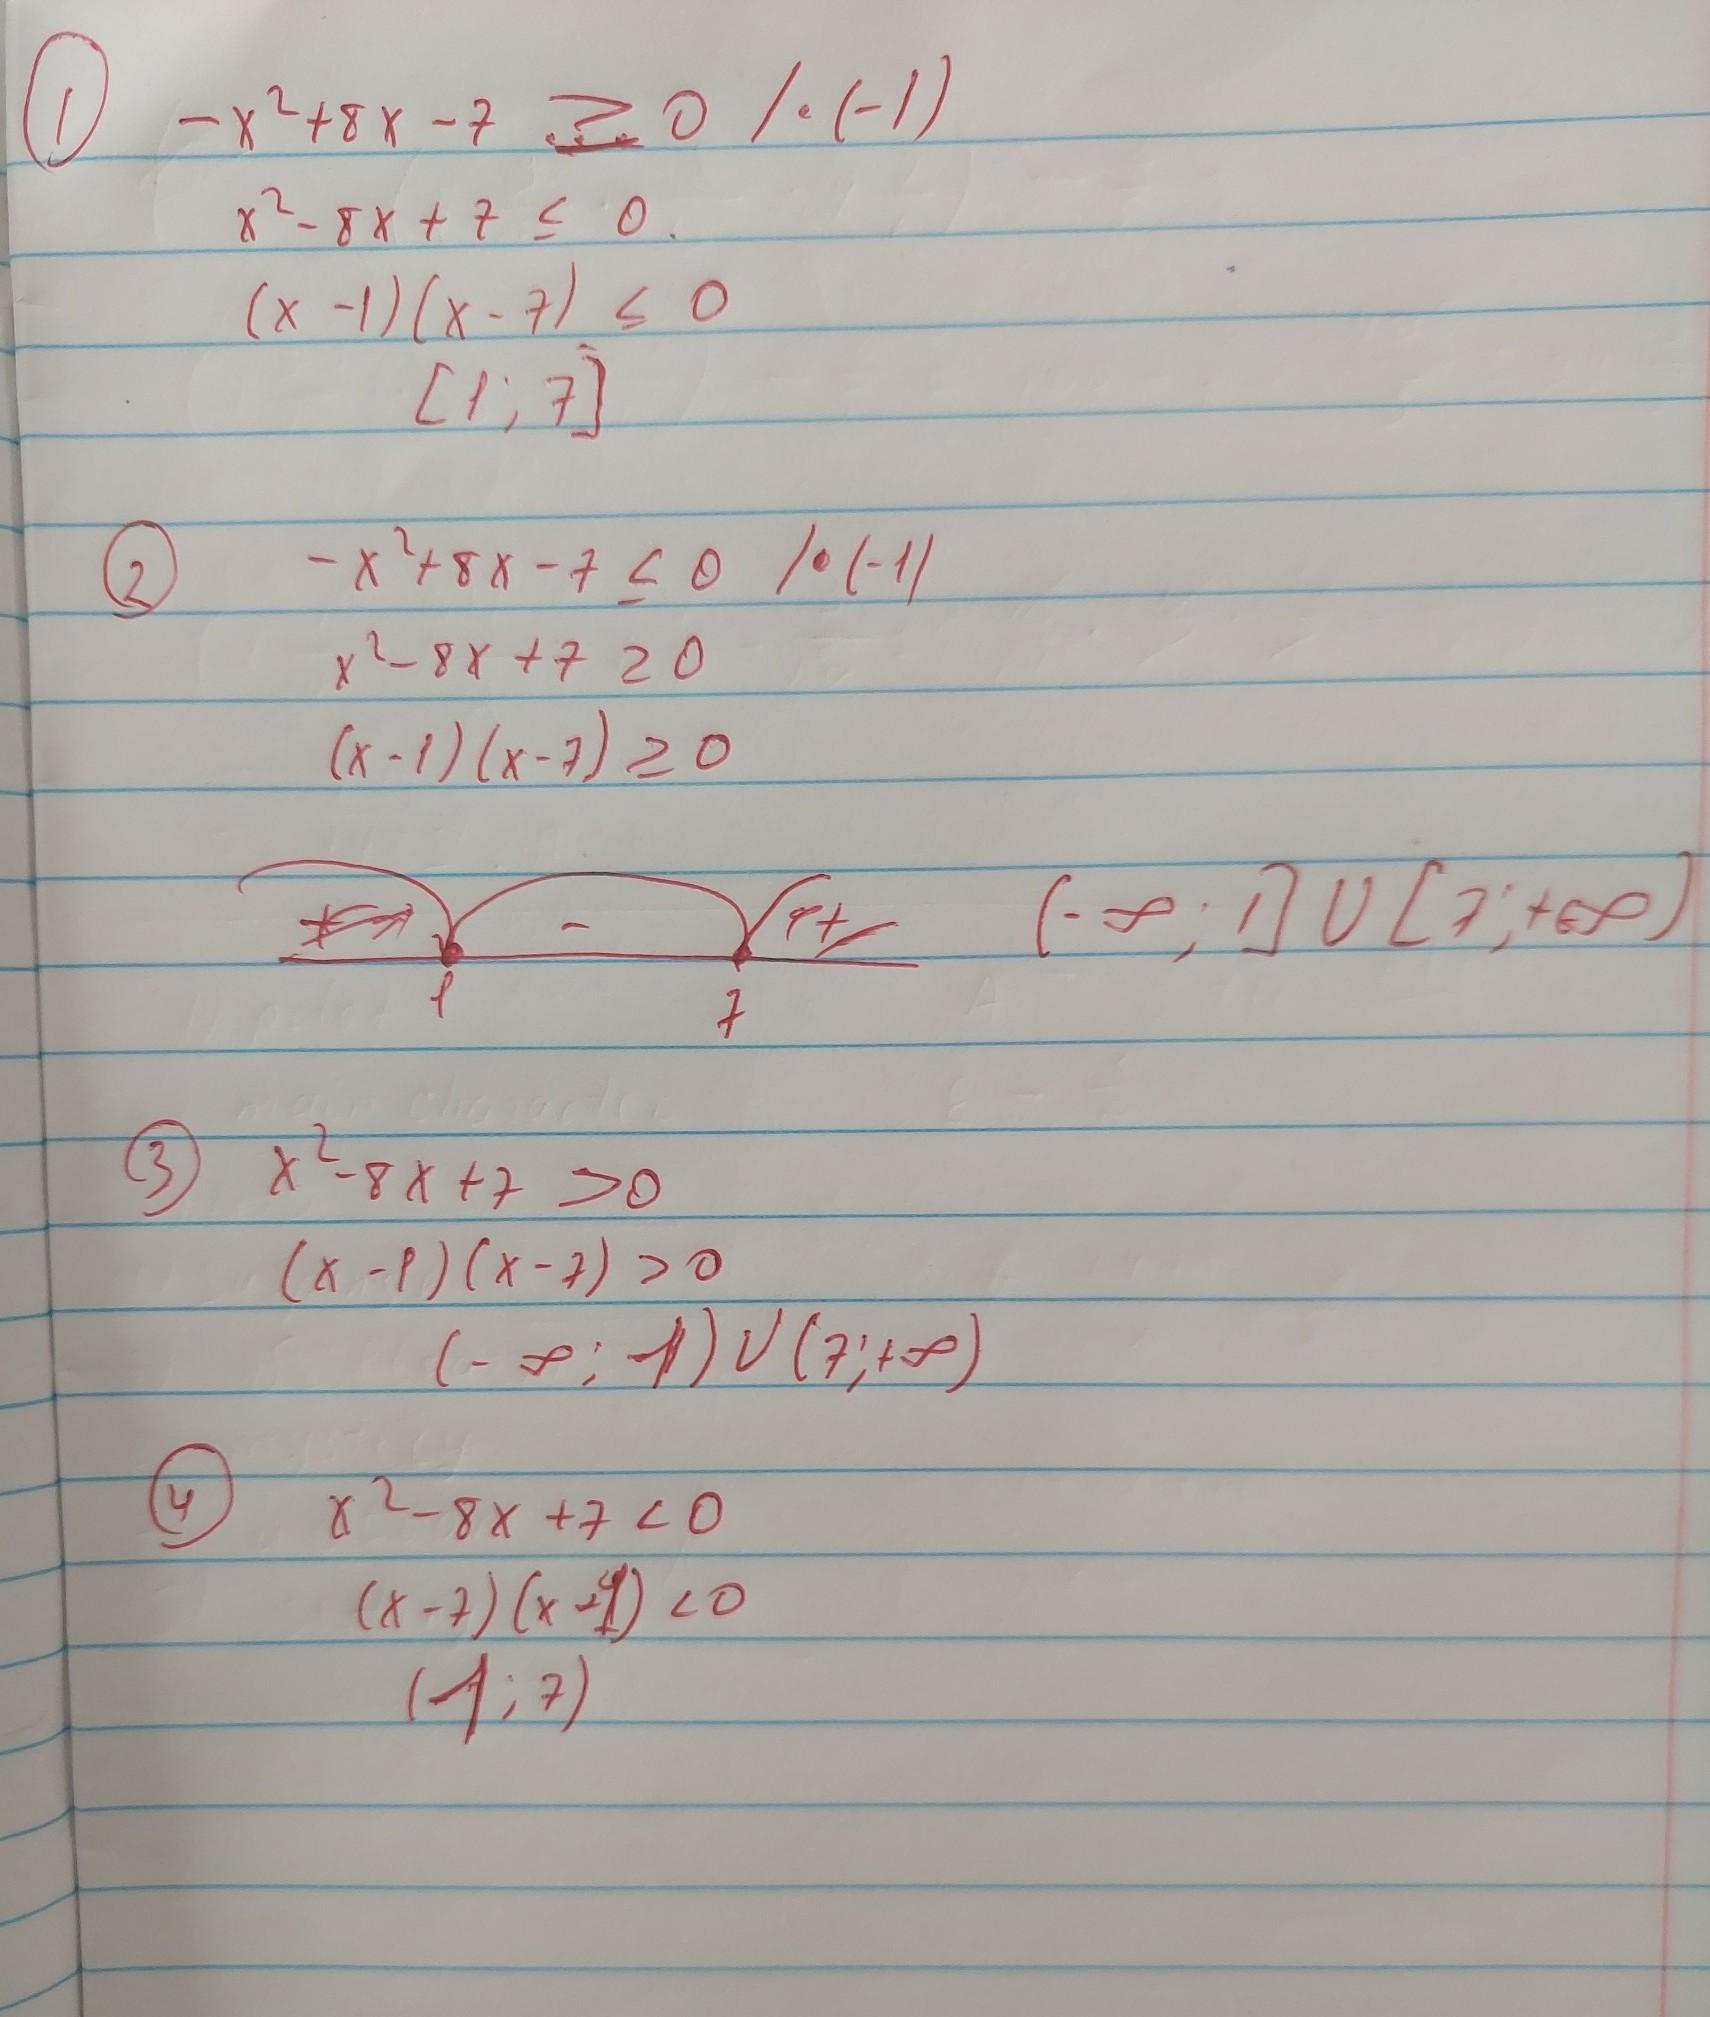 1 -x²+8x-7 ≥ 0 /·(-1)
x²-8x+7 ≤ 0.
(x-1)(x-7) ≤ 0
[1; 7]
2 -x²+8x-7 ≤ 0 /·(-1)
x²-8x+7 ≥ 0
(x-1)(x-7) ≥ 0
- + (-∞; 1] ∪ [7; +∞)
1 7
3 x²-8x+7 >0
(x-1)(x-7) >0
(-∞; 1) ∪ (7; +∞)
4 x²-8x+7 <0
(x-7)(x-1) <0
(1; 7)